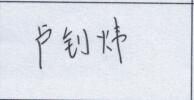 卢钊炜